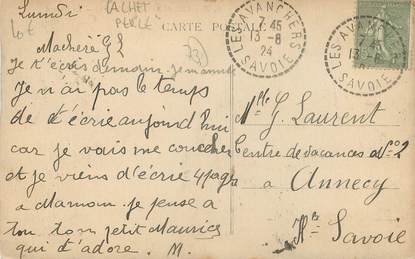 Lundi
CACHET
PERLÉ
Lot
CARTE POSTALE
Ma chère G
Je t'écris demain. Je m'ennuie
Je n'ai pas le temps
de t'écrie aujourd hui
car je vais me coucher
et je viens d'écrie 4 pages
a Maman je pense a
ton petit Maurice
qui t'adore. M.
LES AVANCHERS
7.45
13-8
24
SAVOIE
LES AVANCHERS
45
13-8
SAVOIE
Mlle G. Laurent
Centre de vacances No 2
a Annecy
Hte Savoie